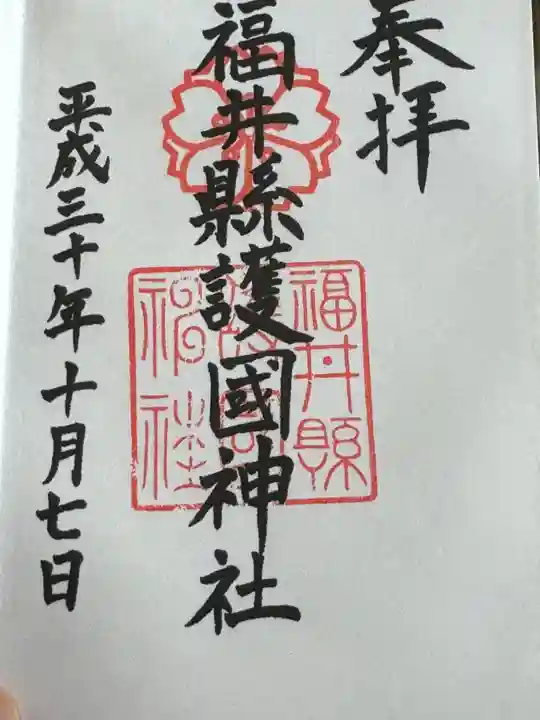 奉拝
福井縣護國神社
福井縣
護國
神社
平成三十年十月七日